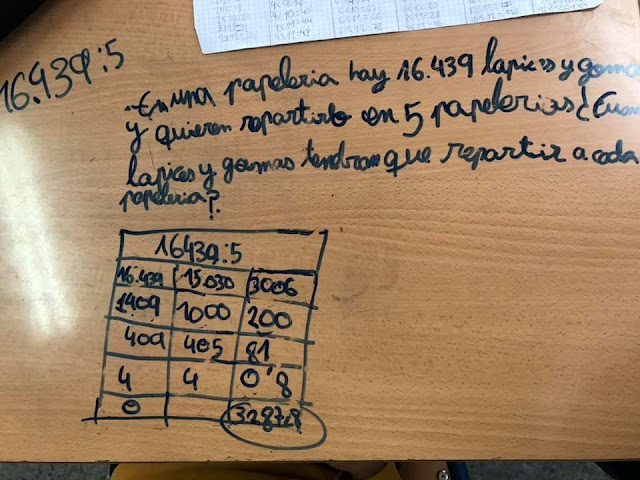 16.439:5
.En una papeleria hay 16.439 lapices y goma
y quieren repartirlo en 5 papelerias ¿Cuan
lapices y gomas tendran que repartir a cada
papeleria?
16439:5
16.439 15.030 3006
1409 1000 200
409 405 81
4 4 0'8
0 3287'8